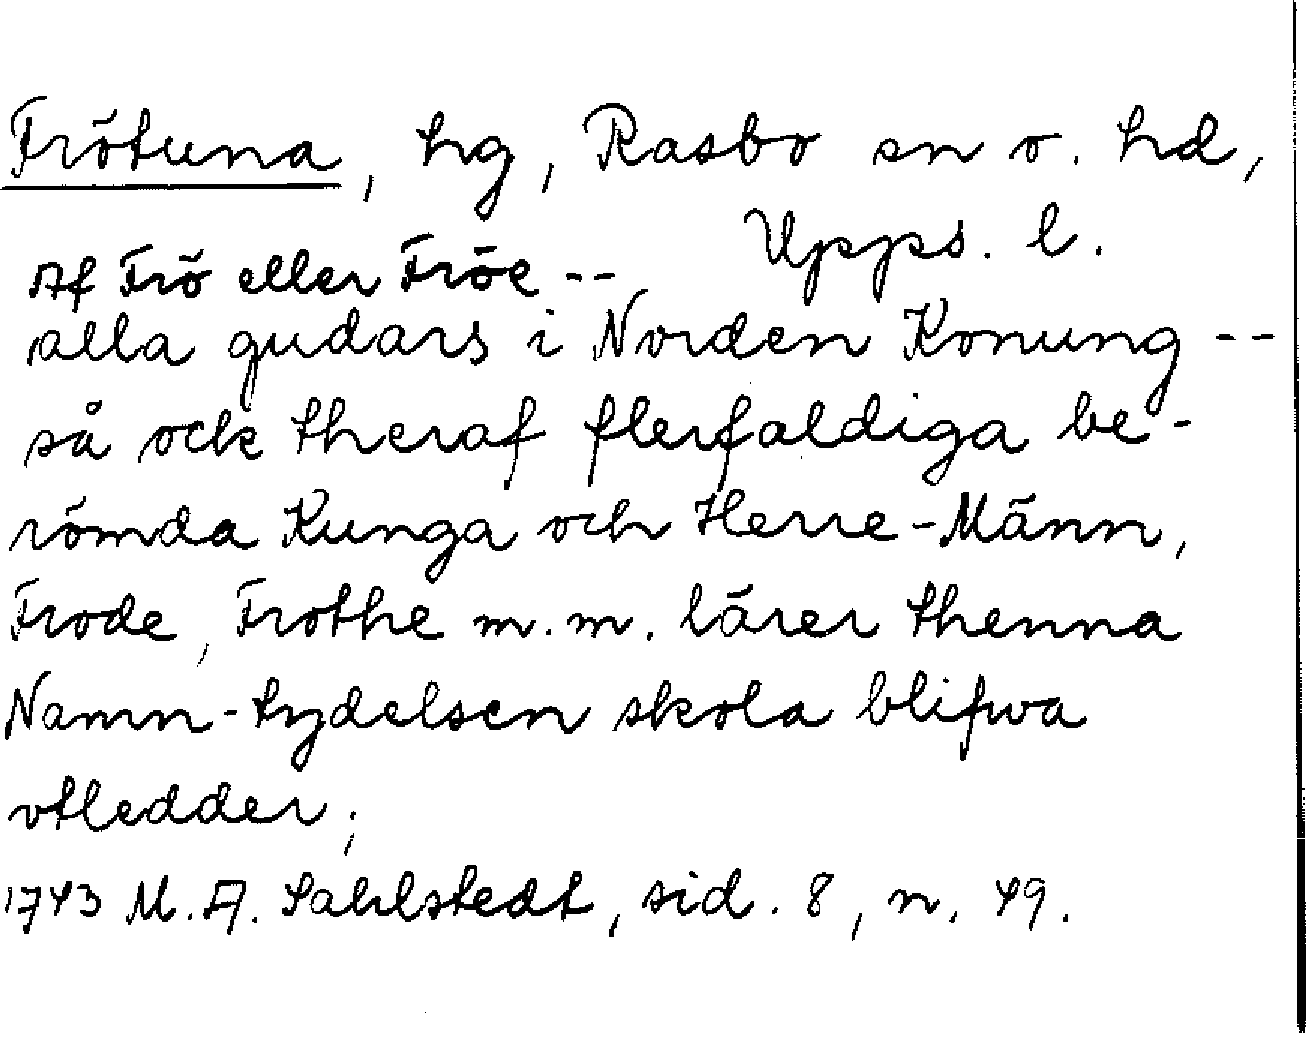 Frötuna, hg, Rasbo sn o. hd,
Upps. l.
Af Frö eller Fröe --
alla gudars i Norden Konung --
så ock theraf flerfaldiga be-
römda Kunga och Herre-Männ,
Frode, Frothe m.m. lärer thenna
Namn-tydelsen skola blifwa
vtledder;
1743 M. A. Sahlstedt, sid. 8, n. 49.